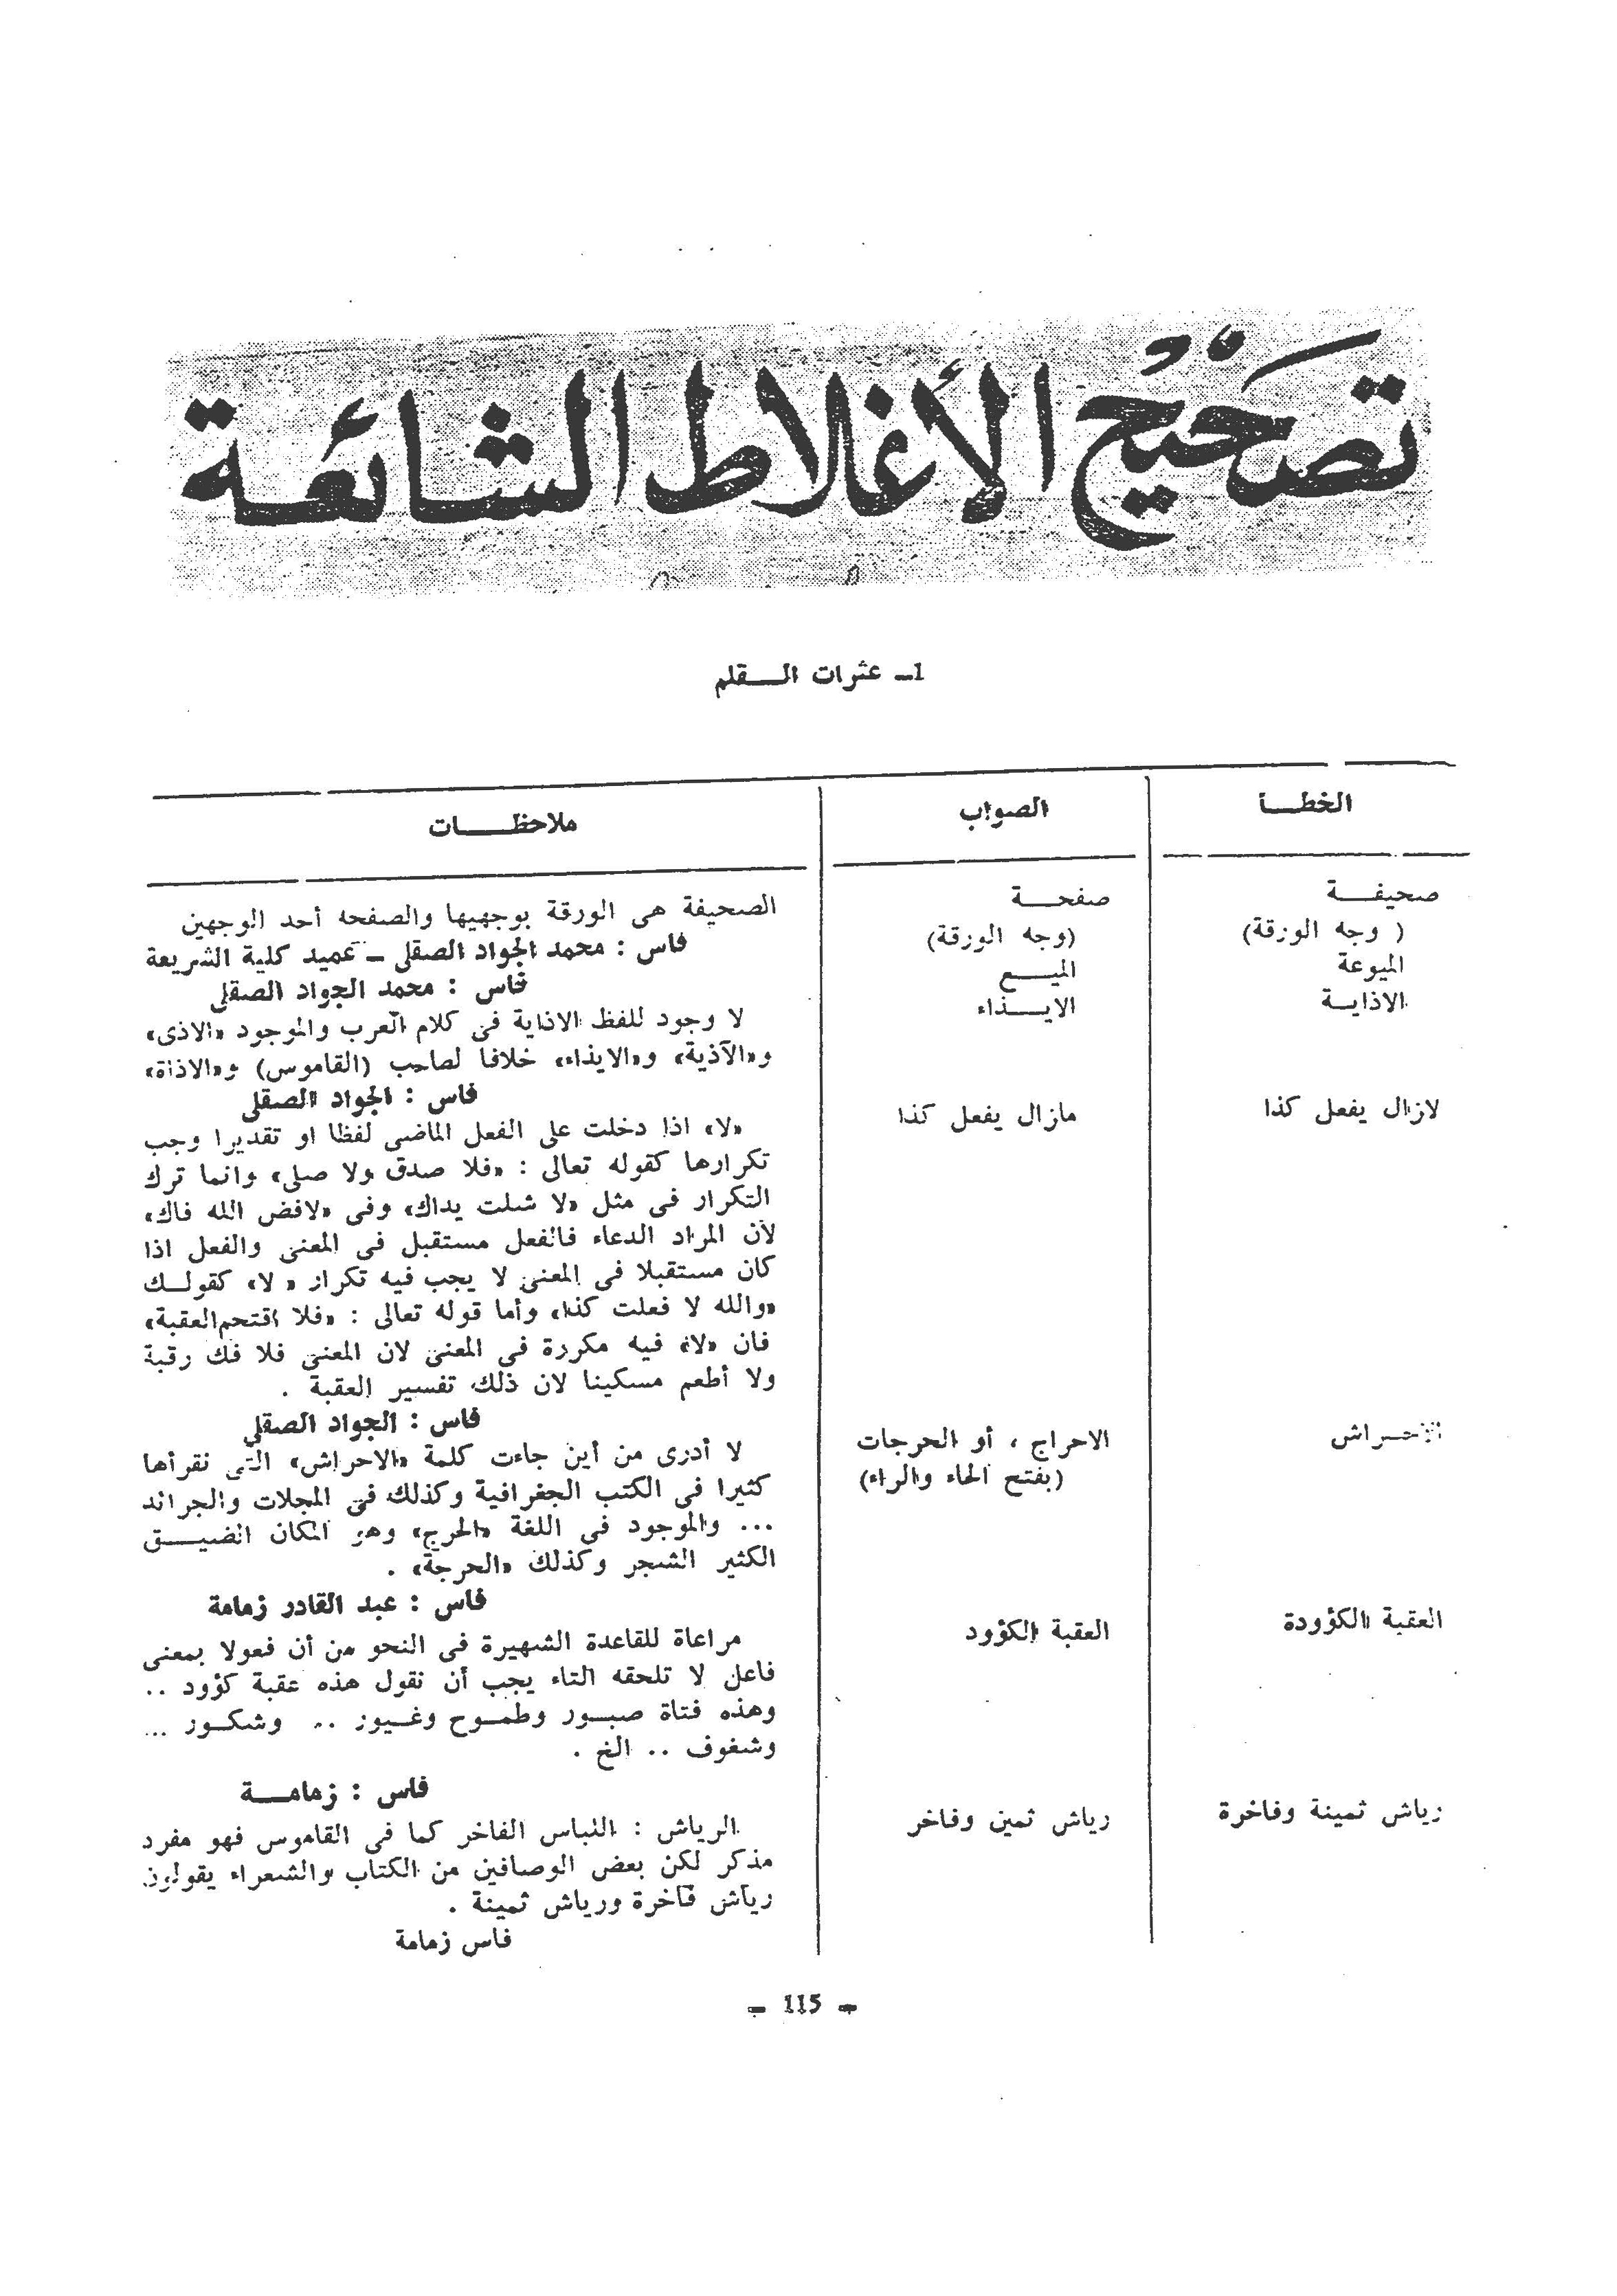 تصحيح الأغلاط الشائعة
1ـ عثرات الـــقلم
الخطــأ
الصواب
ملاحظــــات
صحيفــة
( وجه الورقة)
الميوعة
الاذايـة
لازال يفعل كذا
الاحـراش
العقبة الكؤودة
رياش ثمينة وفاخرة
صفحــة
(وجه الورقة)
الميــع
الايــذاء
مازال يفعل كذا
الاحراج ، أو الحرجات
(بفتح الحاء والراء)
العقبة الكؤود
رياش ثمين وفاخر
الصحيفة هى الورقة بوجهيها والصفحه أحد الوجهين
فاس : محمد الجواد الصقلى ــ عميد كلية الشريعة
فاس : محمد الجواد الصقلى
لا وجود للفظ الاذاية فى كلام العرب والموجود «الاذى»
و«الآذية» و«الايذاء» خلافا لصاحب (القاموس) و«الاذاة»
فاس : الجواد الصقلى
«لا» اذا دخلت على الفعل الماضى لفظا او تقديرا وجب
تكرارها كقوله تعالى : «فلا صدق ولا صلى» وانما ترك
التكرار فى مثل «لا شلت يداك» وفى «لافض الله فاك»
لأن المراد الدعاء فالفعل مستقبل فى المعنى والفعل اذا
كان مستقبلا فى المعنى لا يجب فيه تكرار « لا» كقولــك
«والله لا فعلت كذا» وأما قوله تعالى : «فلا اقتحم العقبة»
فان «لا» فيه مكررة فى المعنى لان المعنى فلا فك رقبة
ولا أطعم مسكينا لان ذلك تفسير العقبة .
فاس : الجواد الصقلى
لا أدرى من أين جاءت كلمة «الاحراش» التى نقرأها
كثيرا فى الكتب الجغرافية وكذلك فى المجلات والجرائد
... والموجود فى اللغة «الحرج» وهو المكان الضيــق
الكثير الشجر وكذلك «الحرجة» .
فاس : عبد القادر زمامة
مراعاة للقاعدة الشهيرة فى النحو من أن فعولا بمعنى
فاعل لا تلحقه التاء يجب أن نقول هذه عقبة كؤود ..
وهذه فتاة صبــور وطمــوح وغـيور .. وشكــور ...
وشغوف .. الخ .
فاس : زمامــة
الرياش : اللباس الفاخر كما فى القاموس فهو مفرد
مذكر لكن بعض الوصافين من الكتاب والشعراء يقولون
رياش فاخرة ورياش ثمينة .
فاس زمامة
ـ 115 ـ